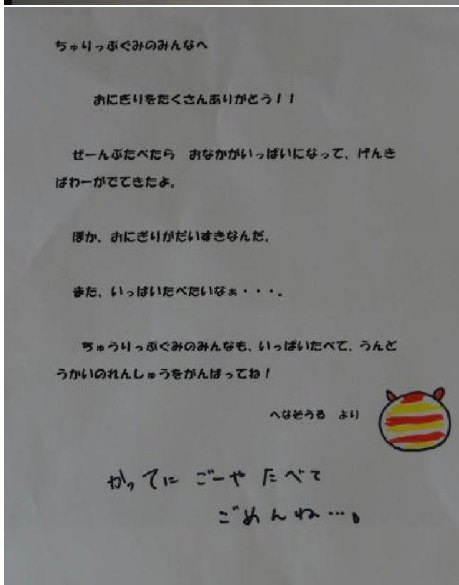 ちゅりっぷぐみのみんなへ
おにぎりをたくさんありがとう！！
ぜーんぶたべたら　おなかがいっぱいになって、げんき
ぱわーがでてきたよ。
ぼか、おにぎりがだいすきなんだ。
また、いっぱいたべたいなぁ・・・。
ちゅうりっぷぐみのみんなも、いっぱいたべて、うんど
うかいのれんしゅうをがんばってね！
へなそうる　より
かってに ごーや たべて
ごめんね…。